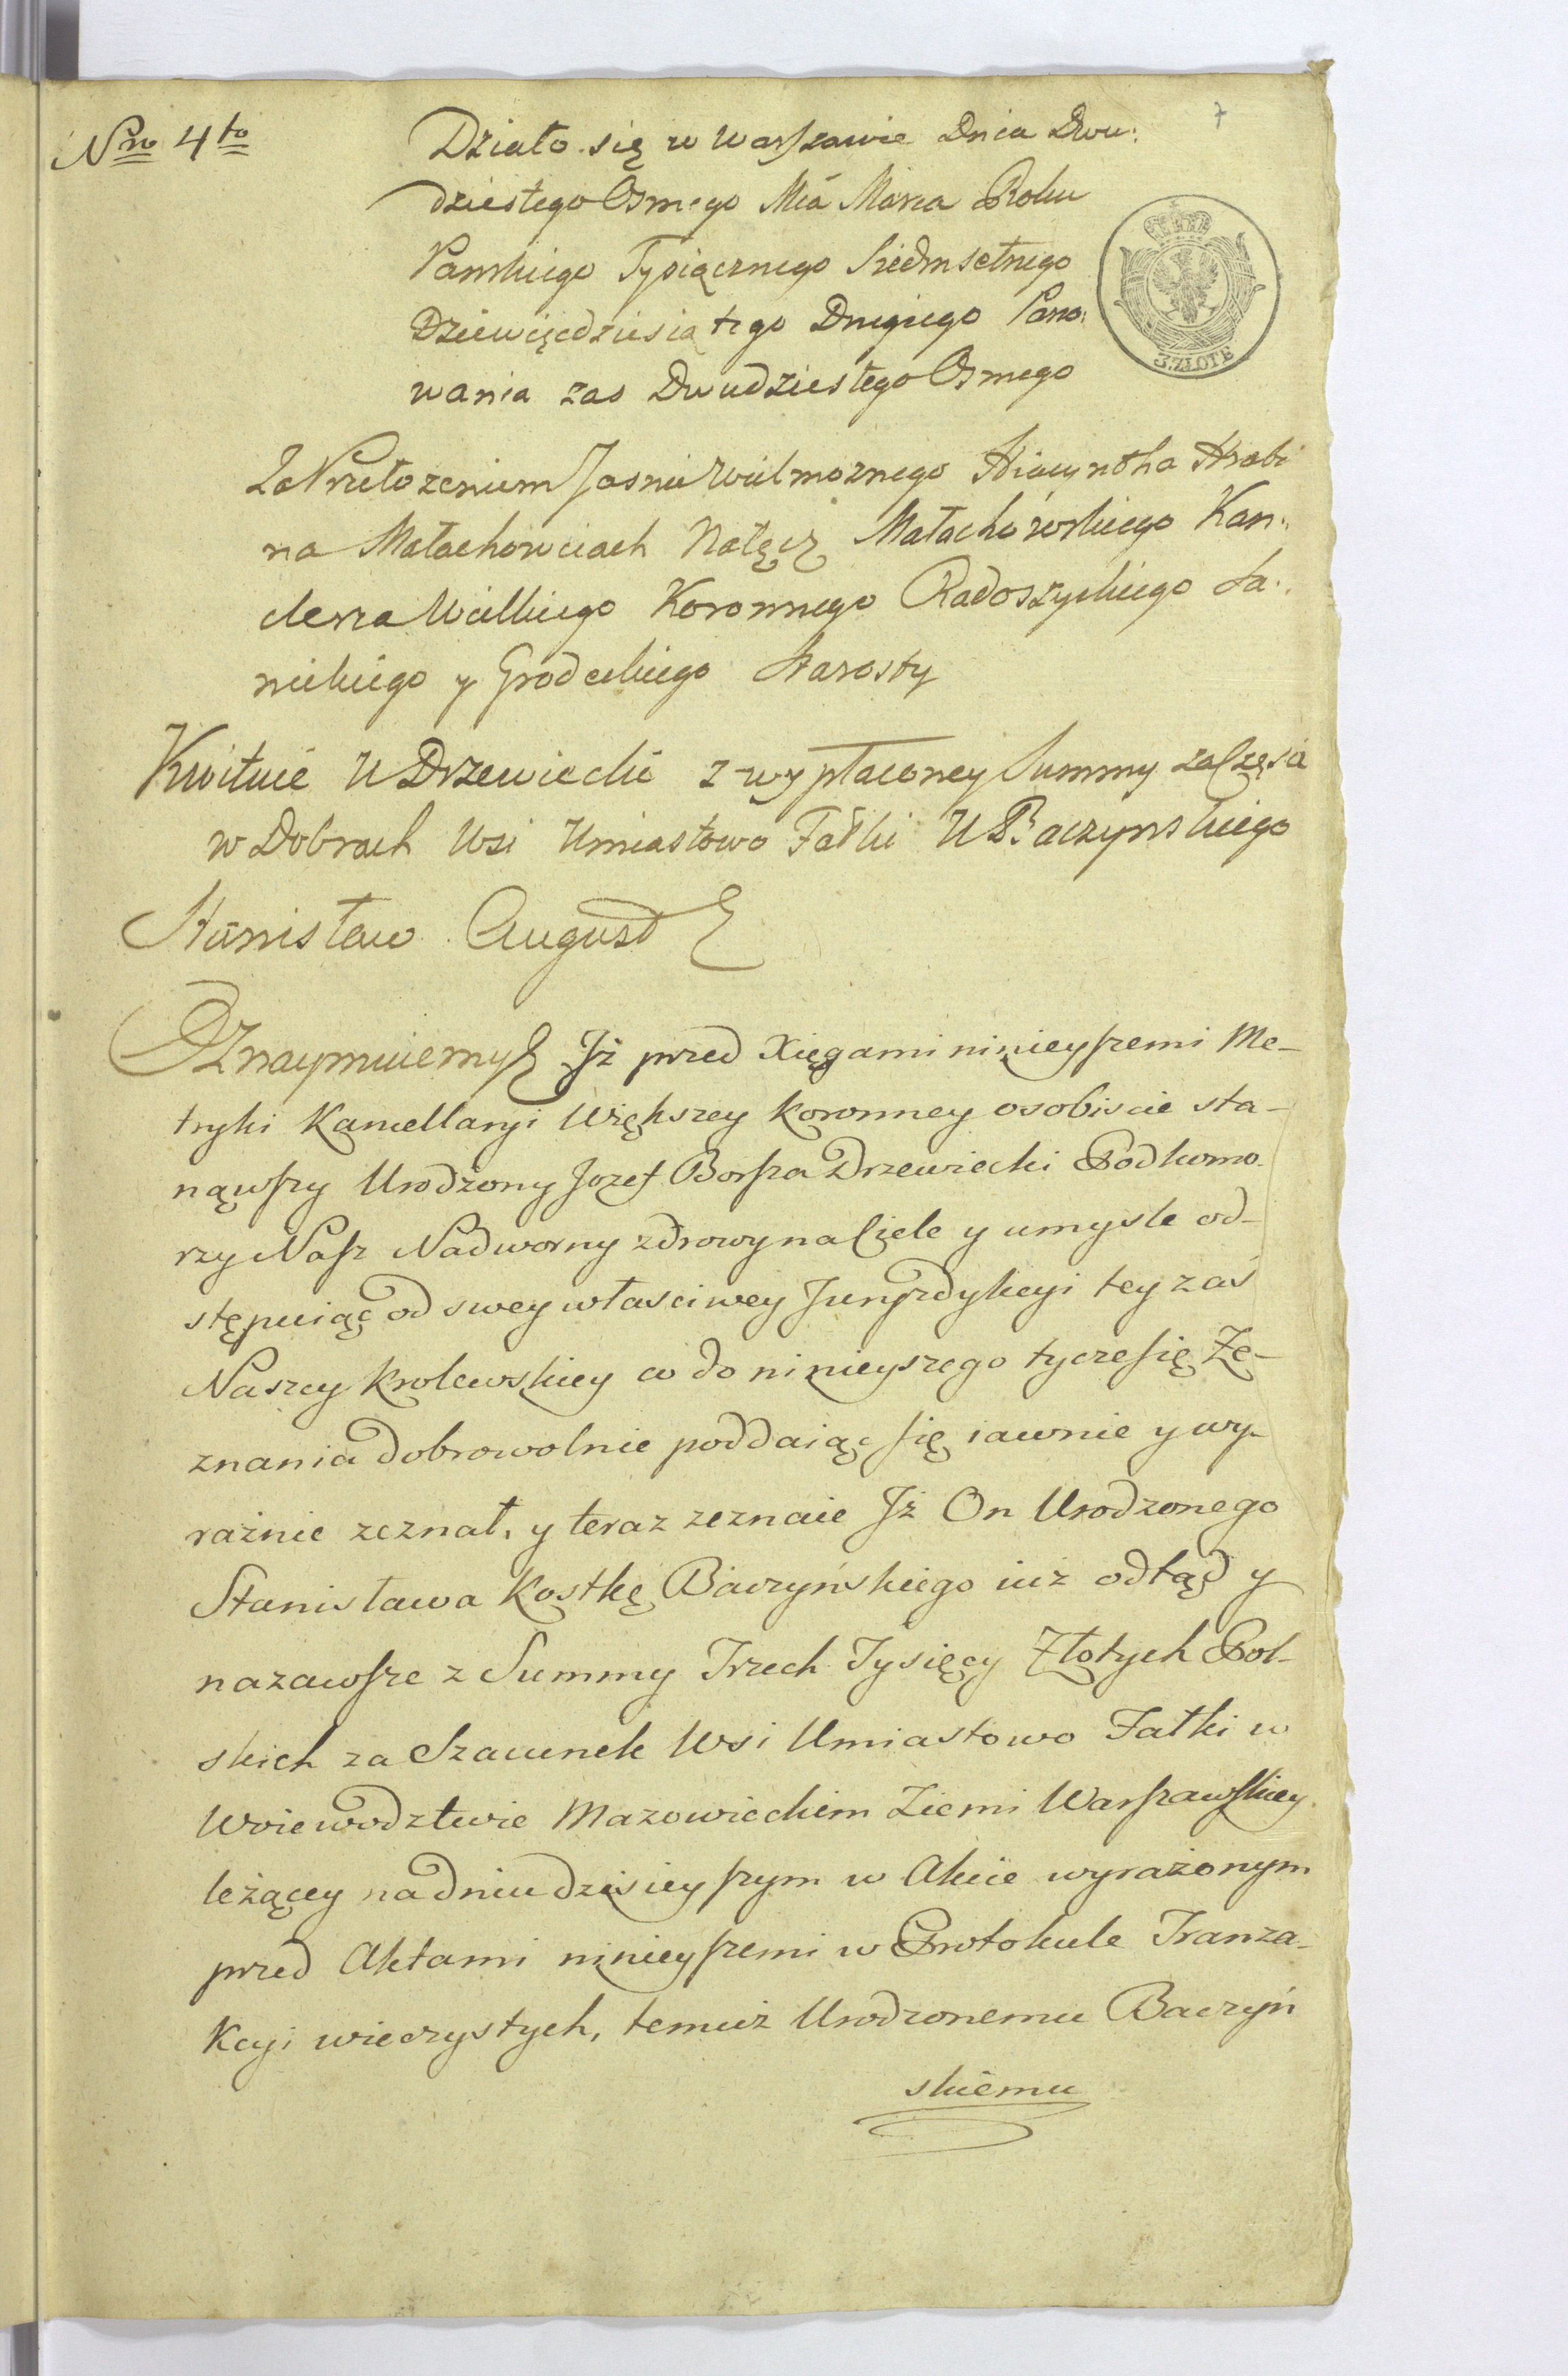 Nro 4to
7
Działo się w Warszawie Dnia Dwu:
dziestego Osmego Mca Marca Roku
Pańskiego Tysiącznego Siedmsetnego
Dziewięcdziesiątego Drugiego Pano:
wania zas Dwudziestego Osmego
3. ZŁOTE
Za Przełozeniem Jasnie Wielmoznego Hiacyntha Hrabi
na Małachowicach Nałęcz Małachowskiego Kan:
clerza Wielkiego Koronnego Radoszyckiego Sa:
nickiego y Grodeckiego Starosty
Kwituie U Drzewiecki z wypłaconey Summy za Częsci
w Dobrach Wsi Umiastowo Fałki U Baczynskiego
Stanisław August
Oznaymuiemy Jż przed Xięgami ninieyszemi Me-
tryki Kancellaryi Większey Koronney osobiscie sta-
nąwszy Urodzony Jozef Borsza Drzewiecki Podkomo-
rzy Nasz Nadworny zdrowy na Ciele y umysle od-
stępuiąc od swey własciwey Juryzdykcyi tey zaś
Naszey Krolewskiey co do ninieyszego tycze się Ze-
znania dobrowolnie poddaiąc się iawnie y wy-
raźnie zeznał, y teraz zeznaie Jż On Urodzonego
Stanisława Kostkę Baczyńskiego iuż odtąd y
na zawsze z Summy Trzech Tysięcy Złotych Pol-
skich za Szacunek Wsi Umiastowo Fałki w
Woiewodztwie Mazowieckiem Ziemi Warszawskiey
leżącey na dniu dzisieyszym w Akcie wyrażonym
przed Aktami ninieyszemi w Protokule Tranza-
kcyi wieczystych, temuż Urodzonemu Baczyń
skiemu